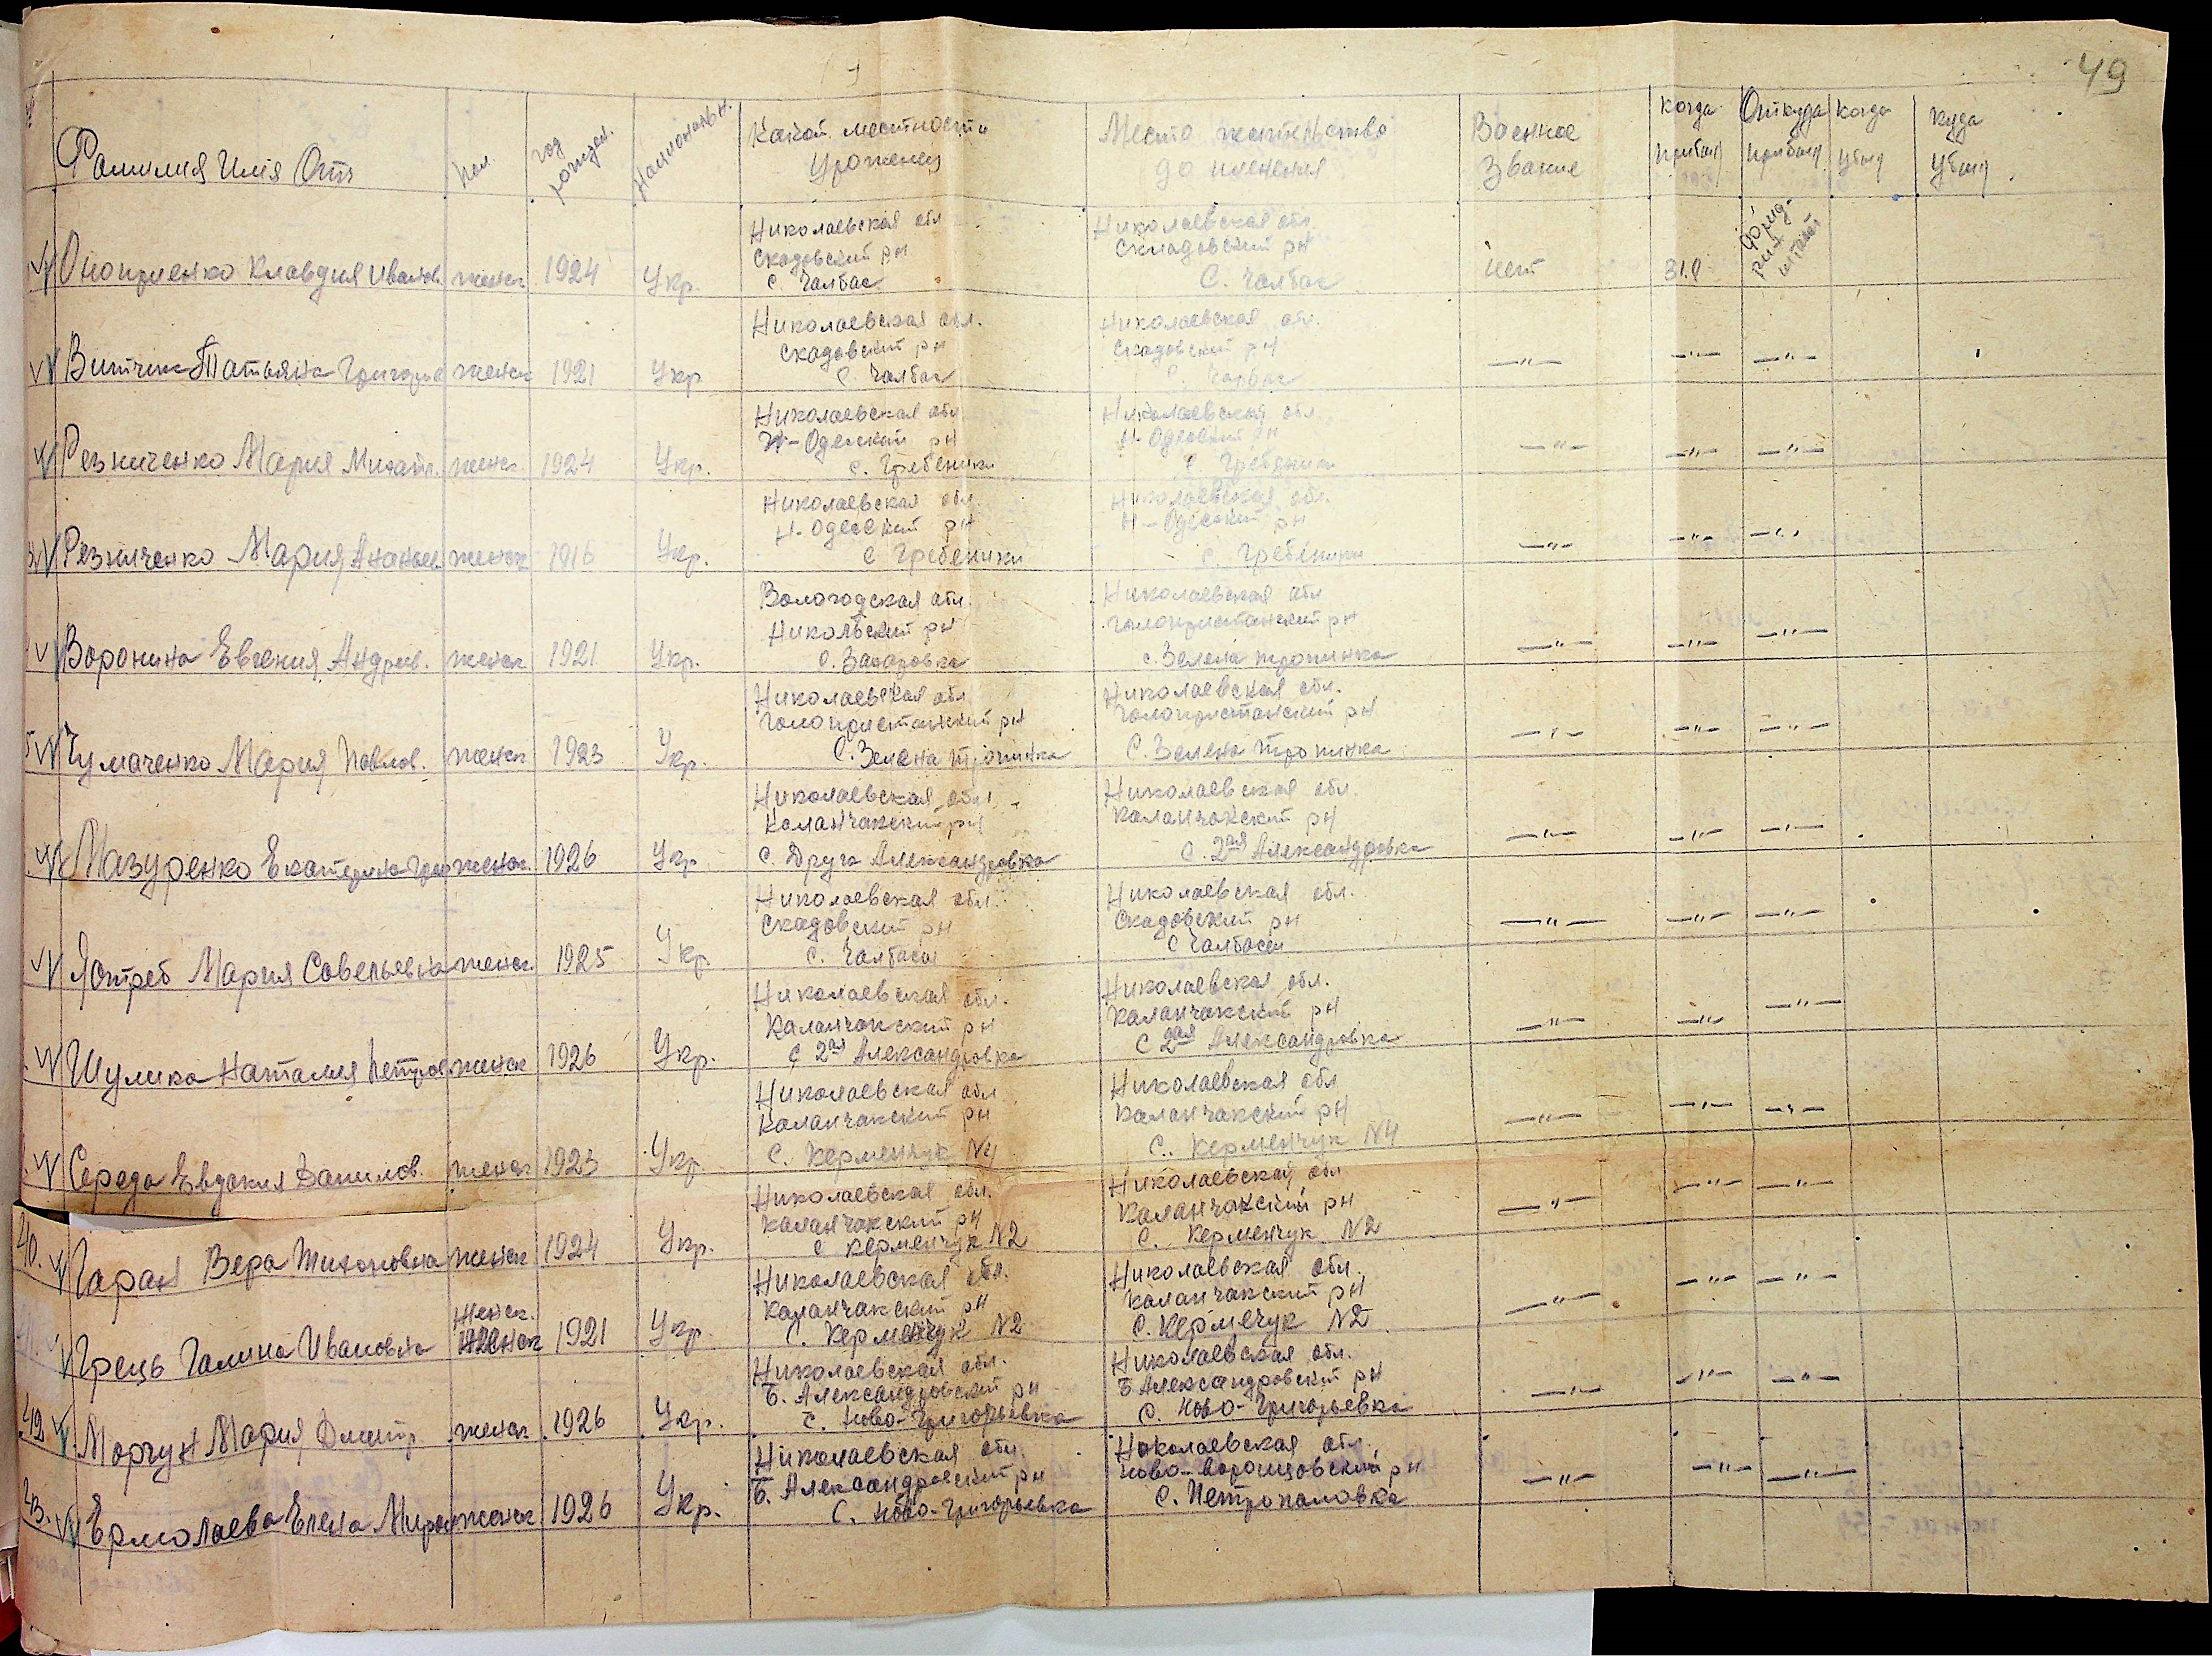 49
Фамилия Имя Отч
пол.
год рожден.
Национальн.
Какой местности
Уроженец
Место жительство
до пленения
Военное
Звание
когда
прибыл
Откуда
прибыл
когда
убыл
куда
убыл
Оноприенко Клавдия Иванов. женск 1924 Укр.
Николаевская обл
Скадовский рн
С. Чалбас
Николаевская обл.
Скадовский рн
С. Чалбас
нет 31.8
Татьяна Григорье женск 1921 Укр
Николаевская обл.
Скадовский рн
С. Чалбас
Николаевская обл.
Скадовский рн
С. Чалбас
—"— —"— —"—
Резниченко Мария Михайл. женск 1924 Укр.
Николаевская обл
Н-Одеский рн
с. Гребеники
Николаевская обл
Н-Одеский рн
с. Гребеники
—"— —"— —"—
Резниченко Мария Ананьев женск 1916 Укр.
Николаевская обл
Н-Одесский рн
с Гребеники
Николаевская обл.
Н-Одесский рн
с. Гребеники
—"— —"— —"—
Воронина Евгения Андреев. женск 1921 Укр.
Вологодская обл.
Никольский рн
с. Захаровка
Николаевская обл
Голопристанский рн
с. Зелена тропинка
—"— —"— —"—
Чумаченко Мария Павлов. женск 1923 Укр.
Николаевская обл
Голопристанский рн
С. Зелена тропинка
Николаевская обл.
Голопристанский рн
С. Зелена тропинка
—"— —"— —"—
Мазуренко Екатерина Гри женск. 1926 Укр
Николаевская обл
Каланчакский рн
с. Друга Александровка
Николаевская обл.
Каланчакский рн
с. 2ая Александровка
—"— —"— —"—
Ястреб Мария Савельевна женск. 1925 Укр
Николаевская обл.
Скадовский рн
с. Чалбасы
Николаевская обл.
Скадовский рн
с Чалбасы
—"— —"— —"—
Шулика Наталия Петров женск 1926 Укр.
Николаевская обл.
Каланчакский рн
с 2ая Александровка
Николаевская обл.
Каланчакский рн
С 2ая Александровка
—"— —"— —"—
Середа Евдокия Данилов. женск 1923 Укр
Николаевская обл
Каланчакский рн
С. Керменчук N4
Николаевская обл
Каланчакский рн
С. Керменчук N4
—"— —"— —"—
40. Гаран Вера Тихоновна женск 1924 Укр.
Николаевская обл.
Каланчакский рн
с Керменчук N2
Николаевская обл
Каланчакский рн
С. Керменчук N2
—"— —"— —"—
Грець Галина Ивановна Женск. 1921 Укр.
Николаевская обл.
Каланчакский рн
С. Керменчук N2
Николаевская обл.
Каланчакский рн
С. Кермечук N2
—"— —"— —"—
42 Моргун Мария Дмитр женск 1926 Укр.
Николаевская обл.
Б. Александровский рн
С. Ново-Григорьевка
Николаевская обл.
Б Александровский рн
С. Ново-Григорьевка
—"— —"— —"—
43. Ермолаева Елена Миро женск 1926 Укр.
Николаевская обл
Б. Александровский рн
С. Ново-Григорьевка
Николаевская обл.
Ново-Воронцовский рн
С. Петропаловка
—"— —"— —"—